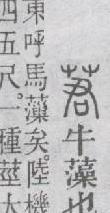 莙牛藻也
東呼馬藻矣。陸機
四五尺。一種莖大